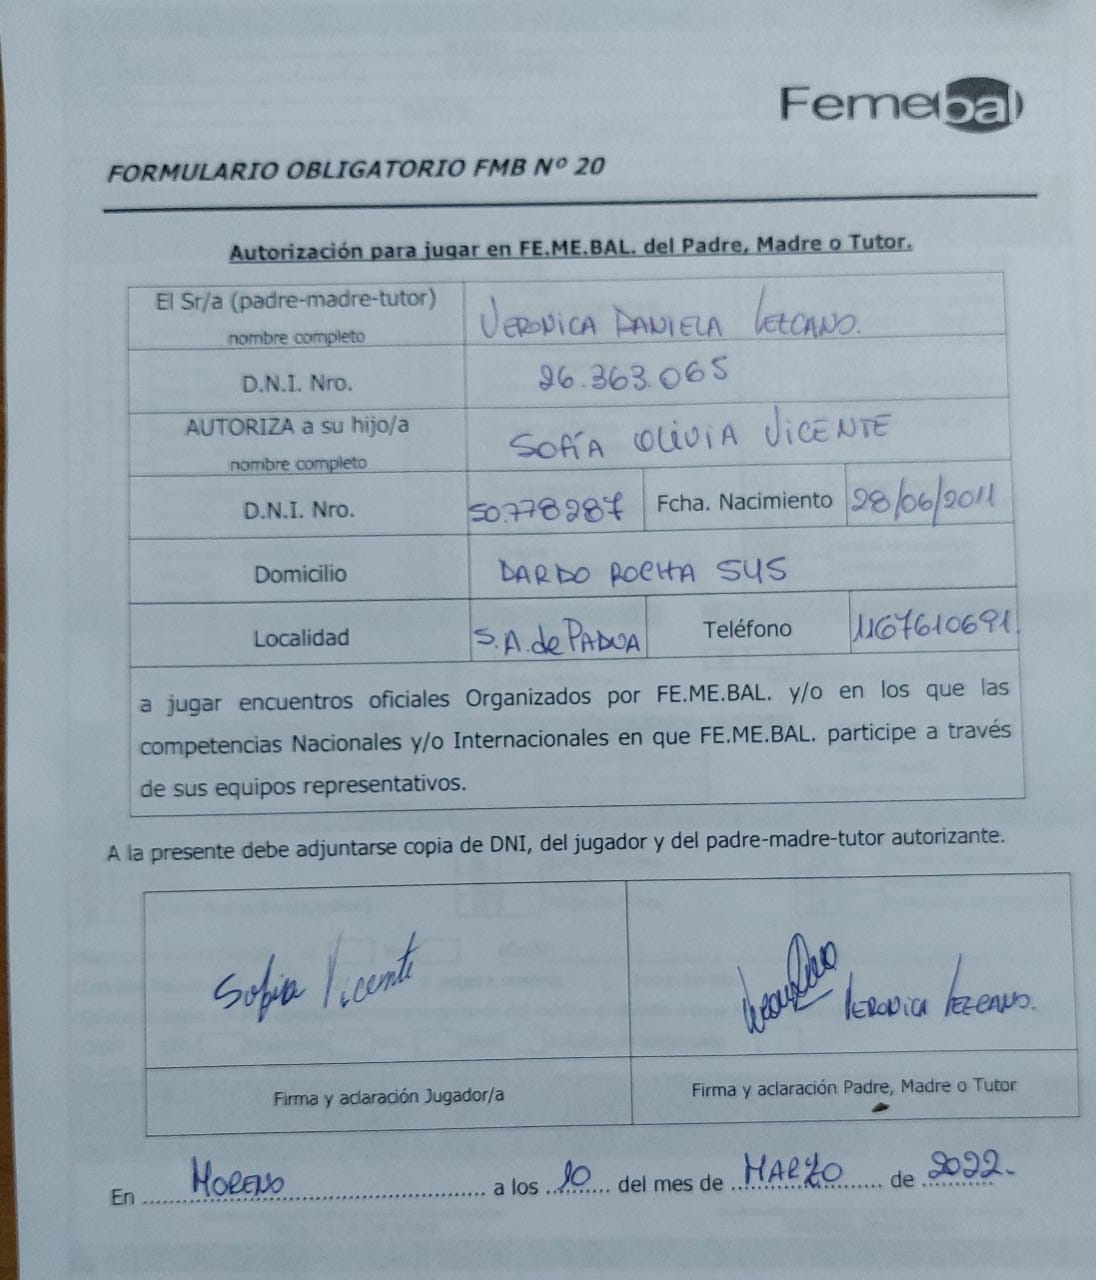 Femebal
FORMULARIO OBLIGATORIO FMB Nº 20
Autorización para jugar en FE.ME.BAL. del Padre, Madre o Tutor.
El Sr/a (padre-madre-tutor)
nombre completo
VERONICA DANIELA LEZCANO.
D.N.I. Nro.
26.363.065
AUTORIZA a su hijo/a
nombre completo
SOFÍA OLIVIA VICENTE
D.N.I. Nro.
50.778287
Fcha. Nacimiento
28/06/2011
Domicilio
DARDO ROCHA 545
Localidad
S.A. de PADUA
Teléfono
1167610691
a jugar encuentros oficiales Organizados por FE.ME.BAL. y/o en los que las
competencias Nacionales y/o Internacionales en que FE.ME.BAL. participe a través
de sus equipos representativos.
A la presente debe adjuntarse copia de DNI, del jugador y del padre-madre-tutor autorizante.
Sofia Vicente
VERONICA LEZCANO.
Firma y aclaración Jugador/a
Firma y aclaración Padre, Madre o Tutor
En MORENO a los 10 del mes de MARZO de 2022.